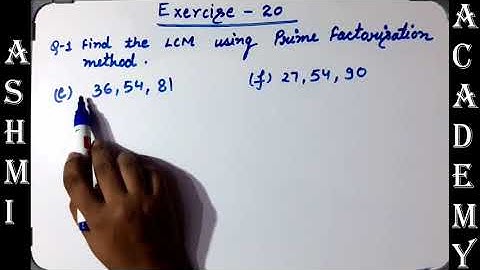 Exercise - 20
Q-1 Find the LCM using Prime Factorization
method.
(e) 36, 54, 81
(f) 27, 54, 90
ASHMI
ACADEMY